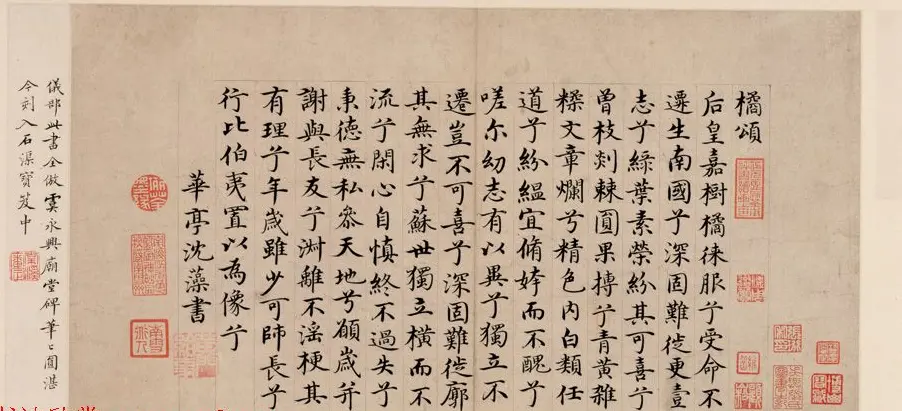 橘頌
后皇嘉樹橘徠服兮受命不
遷生南國兮深固難徙更壹
志兮綠葉素榮紛其可喜兮
曾枝剡棘圓果摶兮青黃雜
糅文章爛兮精色內白類任
道兮紛縕宜脩姱而不醜兮
嗟尔幼志有以異兮獨立不
遷豈不可喜兮深固難徙廓
其無求兮蘇世獨立橫而不
流兮閑心自慎終不過失兮
秉德無私參天地兮願歲并
謝與長友兮淑離不淫梗其
有理兮年歲雖少可師長兮
行比伯夷置以為像兮
華亭沈藻書
儀部此書全倣虞永興廟堂碑筆〻圓湛
今刻入石渠寶笈中